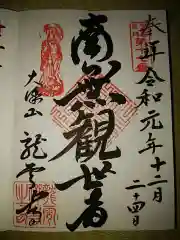 奉拝
令和元年十二月
二十四日
南無観世音
大澤山
龍雲寺